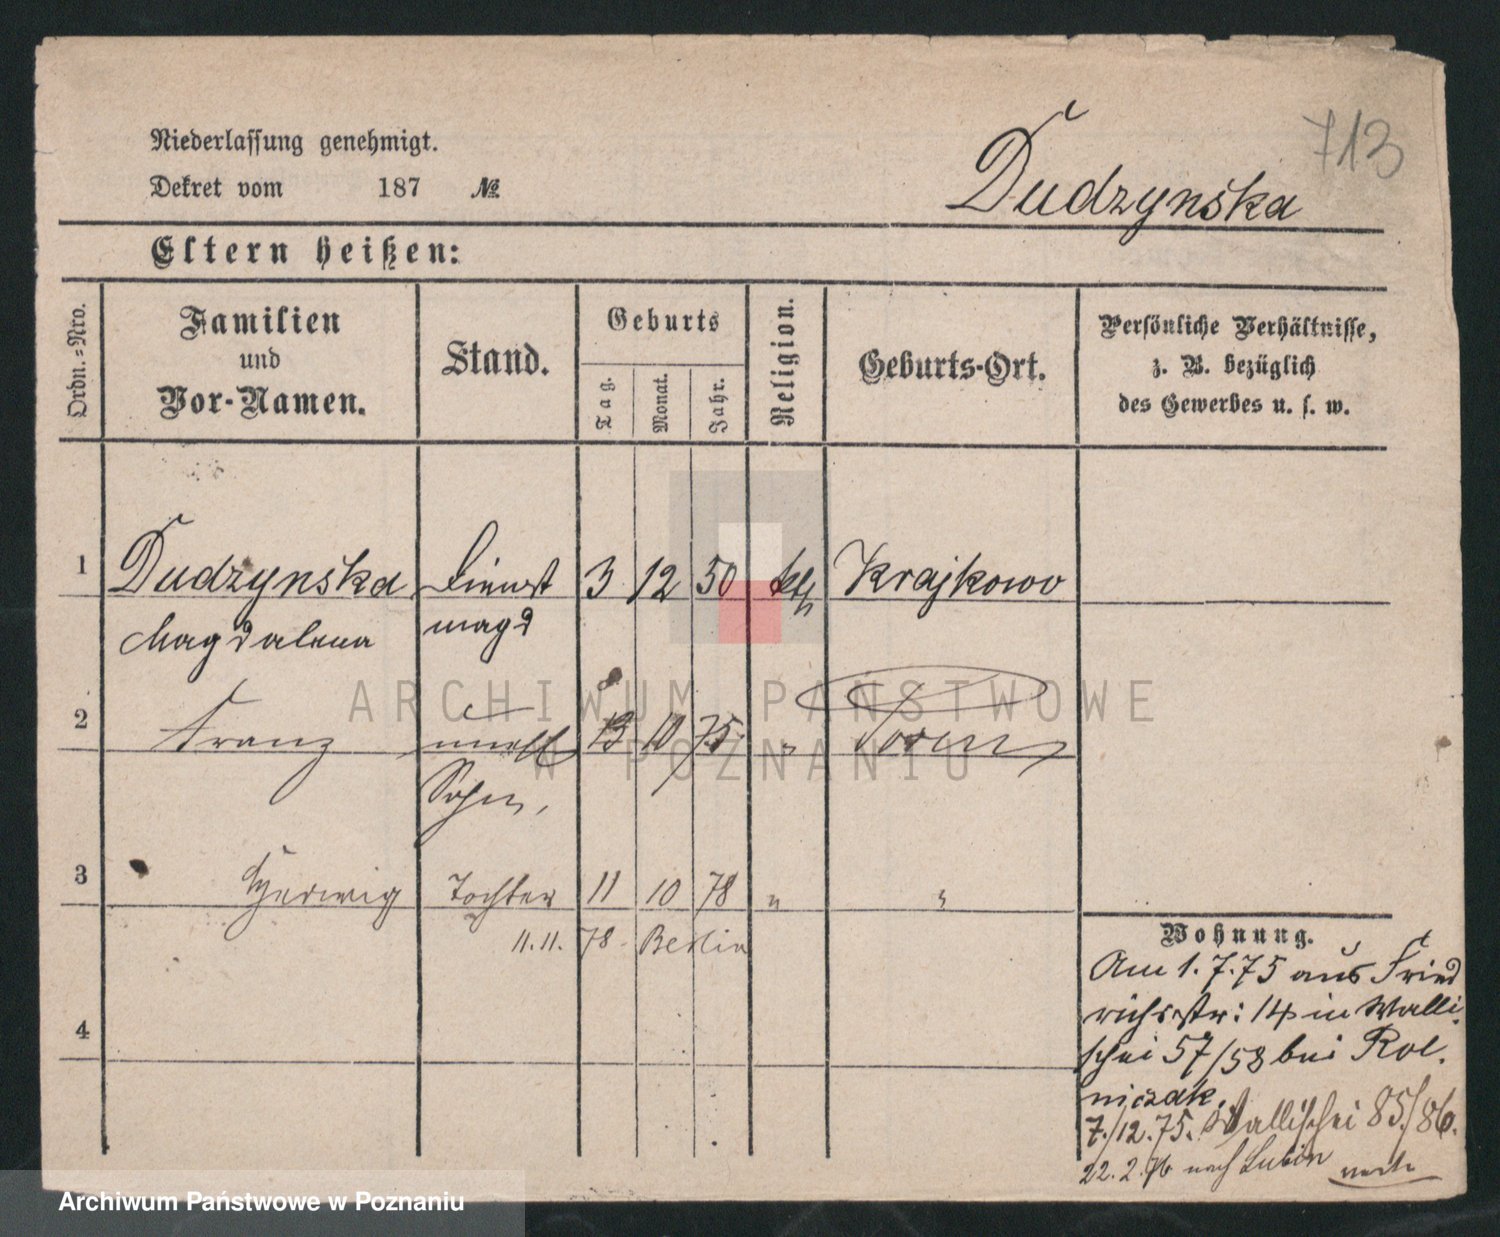 713
Niederlassung genehmigt.
Dekret vom 187 №
Dudzynska
Eltern heißen:
Ordn.-Nro.
Familien
und
Vor-Namen.
Stand.
Geburts
Tag.
Monat.
Jahr.
Religion.
Geburts-Ort.
Persönliche Verhältnisse,
z. B. bezüglich
des Gewerbes u. s. w.
1 Dudzynska Dienst 3 12 50 kth Krajkowo
Magdalena magd
2 Franz unehl 13 10 75 " Posen
Sohn,
3 Hedwig Tochter 11 10 78 " "
11.11. 78 Berlin
4
Wohnung.
Am 1.7.75 aus Fried
richsstr: 14 in Walli
schei 57/58 bei Rol.
niczak.
7./12.75. Wallischei 85/86.
22.2.76 nach Lubin
ARCHIWUM PAŃSTWOWE
W POZNANIU
Archiwum Państwowe w Poznaniu